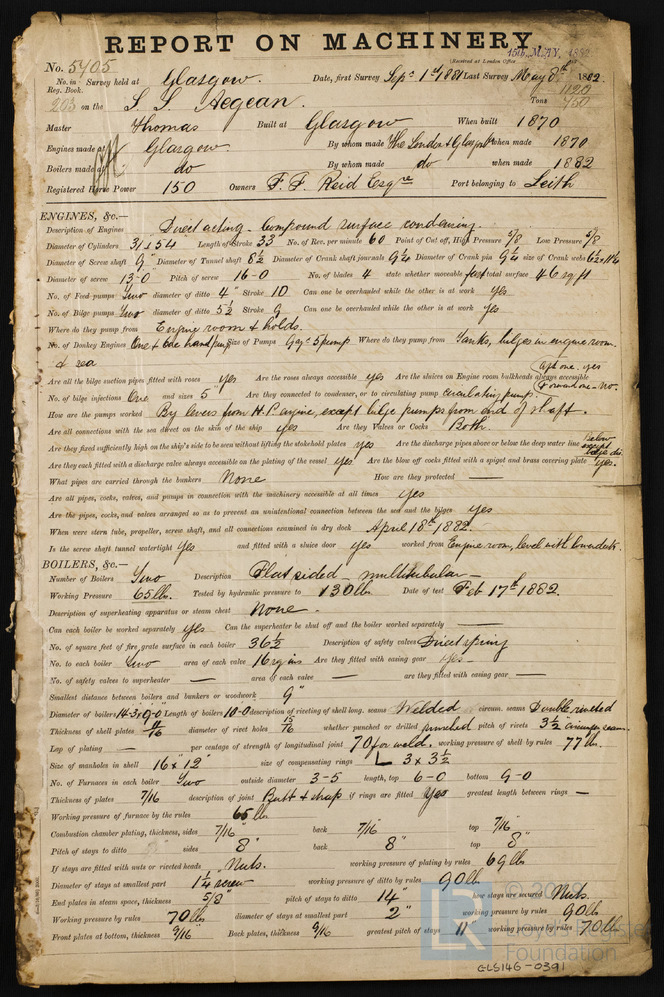 REPORT ON MACHINERY.
No. 5405 15th MAY 1882
(Received at London Office
No. in Survey held at Glasgow. Date, first Survey Sepr 1st 1881 Last Survey May 8th 1882
Reg. Book. 1120
203 on the S. S. Aegean. Tons 750
Master Thomas Built at Glasgow When built 1870
Engines made at Glasgow. By whom made The London & Glasgow when made 1870
Boilers made at do By whom made do when made 1882
Registered Horse Power 150 Owners F. F. Reid Esqre Port belonging to Leith
ENGINES, &c.—
Description of Engines Direct acting - Compound surface condensing.
Diameter of Cylinders 31 & 54 Length of Stroke 33" No. of Rev. per minute 60 Point of Cut off, High Pressure 5/8 Low Pressure 5/8
Diameter of Screw shaft 9" Diameter of Tunnel shaft 8½ Diameter of Crank shaft journals 9¼ Diameter of Crank pin 9¼ size of Crank webs
Diameter of screw 13-0 Pitch of screw 16-0 No. of blades 4 state whether moveable fast total surface 46 sq ft
No. of Feed pumps Two diameter of ditto 4" Stroke 10 Can one be overhauled while the other is at work yes
No. of Bilge pumps Two diameter of ditto 5½ Stroke 9 Can one be overhauled while the other is at work yes
Where do they pump from Engine room & holds.
No. of Donkey Engines One & One hand pump Size of Pumps Where do they pump from Tanks, bilges in engine room.
& sea
Are all the bilge suction pipes fitted with roses yes Are the roses always accessible yes Are the sluices on Engine room bulkheads always accessible Aft one, yes Forward one - no.
No. of bilge injections One and sizes 5" Are they connected to condenser, or to circulating pump circulating pump.
How are the pumps worked By levers from H.P. engine, except bilge pumps from end of shaft.
Are all connections with the sea direct on the skin of the ship yes Are they Valves or Cocks Both.
Are they fixed sufficiently high on the ship's side to be seen without lifting the stokehold plates yes Are the discharge pipes above or below the deep water line Below except bilge dis.
Are they each fitted with a discharge valve always accessible on the plating of the vessel yes Are the blow off cocks fitted with a spigot and brass covering plate yes.
What pipes are carried through the bunkers None How are they protected —
Are all pipes, cocks, valves, and pumps in connection with the machinery accessible at all times yes
Are the pipes, cocks, and valves arranged so as to prevent an unintentional connection between the sea and the bilges yes
When were stern tube, propeller, screw shaft, and all connections examined in dry dock April 18th 1882.
Is the screw shaft tunnel watertight yes and fitted with a sluice door yes worked from Engine room, level with lower deck.
BOILERS, &c.—
Number of Boilers Two Description Flat sided - multitubular -
Working Pressure 65 lb. Tested by hydraulic pressure to 130 lb Date of test Feb 17th 1882.
Description of superheating apparatus or steam chest None.
Can each boiler be worked separately yes Can the superheater be shut off and the boiler worked separately —
No. of square feet of fire grate surface in each boiler 36½ Description of safety valves Direct spring
No. to each boiler Two area of each valve 16 sq ins Are they fitted with easing gear yes -
No. of safety valves to superheater — area of each valve — are they fitted with easing gear —
Smallest distance between boilers and bunkers or woodwork 9"
Diameter of boilers 14-3 x 9-0 Length of boilers 10-0 description of riveting of shell long. seams Welded circum. seams Double riveted
Thickness of shell plates 11/16 diameter of rivet holes 15/16 whether punched or drilled punched pitch of rivets 3½" circumfer. seams.
Lap of plating — per centage of strength of longitudinal joint 70 for weld. working pressure of shell by rules 77 lb.
Size of manholes in shell 16" x 12" size of compensating rings L 3 x 3½
No. of Furnaces in each boiler Two outside diameter 3-5 length, top 6-0 bottom 9-0
Thickness of plates 7/16 description of joint Butt & strap if rings are fitted Yes greatest length between rings —
Working pressure of furnace by the rules 65 lb
Combustion chamber plating, thickness, sides 7/16" back 7/16" top 7/16"
Pitch of stays to ditto sides 8" back 8" top 8"
If stays are fitted with nuts or riveted heads Nuts. working pressure of plating by rules 69 lb
Diameter of stays at smallest part 1¼ screw working pressure of ditto by rules 90 lb
End plates in steam space, thickness 5/8" pitch of stays to ditto 14" how stays are secured Nuts.
Working pressure by rules 70 lb diameter of stays at smallest part 2" working pressure by rules 90 lb
Front plates at bottom, thickness 9/16" Back plates, thickness 9/16 greatest pitch of stays 11" working pressure by rules 70 lb
LR © 2018 Lloyd's Register Foundation
GLS146-0391